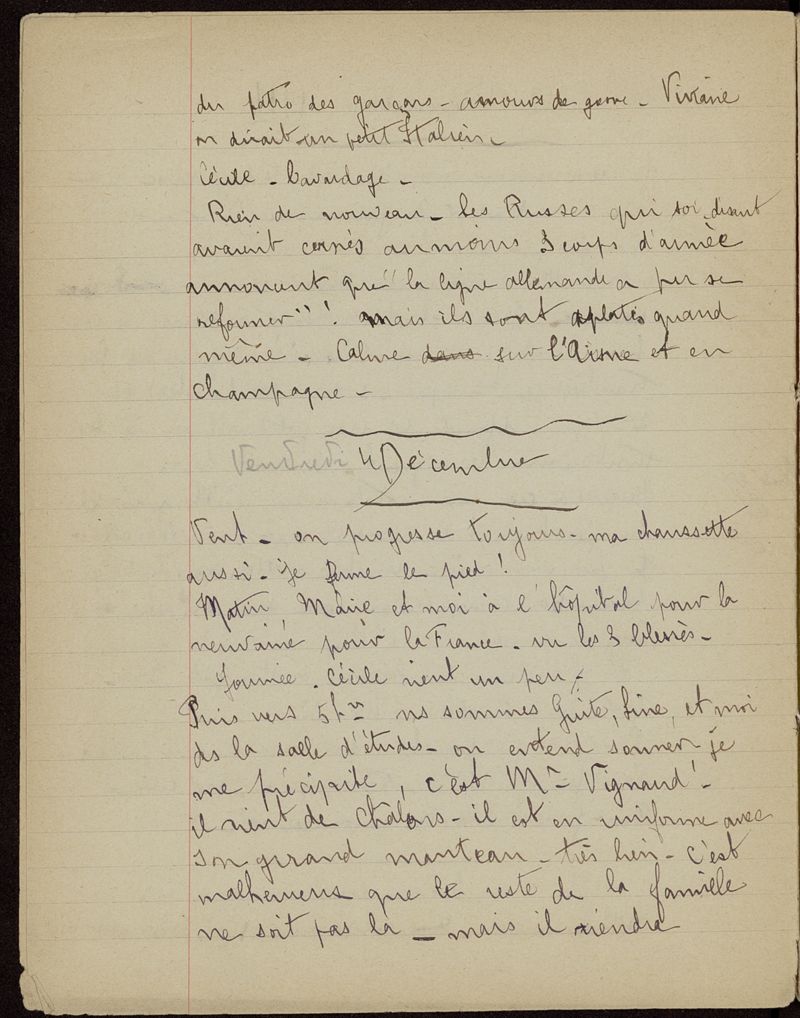 du patro des garçons - amours de gosse - Viviane
on dirait un petit Italien -
Cécile - bavardage -
Rien de nouveau - les Russes qui soi disent
avaient cernés au moins 3 corps d'armée
annoncent que "la ligne allemande a pu se
reformer" ! mais ils sont aplatis quand
même - Calme dans sur l'Aisne et en
champagne -
Vendredi 4 Décembre
Vent - on progresse toujours - ma chaussette
aussi - je ferme le pied !
Matin Marie et moi à l'hôpital pour la
neuvaine pour la France - vu les 3 blessés -
Journée - Cécile vient un peu -
Puis vers 5h ns sommes Guite, Line, et moi
ds la salle d'études - on entend sonner - je
me précipite, c'est Mr Vignaud !
il vient de Chalons - il est en uniforme avec
son grand manteau - très bien - c'est
malheureux que le reste de la famille
ne soit pas là - mais il viendra